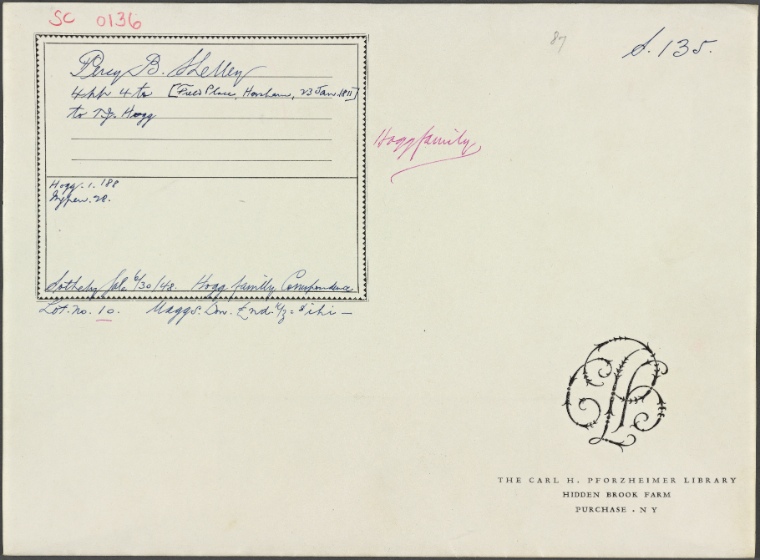 SC 0136
87
S. 135.
Percy B. Shelley
4pp 4to [Field Place, Horsham, 23 Jan. 1811]
to T.J. Hogg
Hogg family
Hogg. 1. 188
Ingpen. 28.
Sotheby Sale 6/30/48. Hogg family Correspondence
Lot. no. 10. Maggs. Lon. End.
THE CARL H. PFORZHEIMER LIBRARY
HIDDEN BROOK FARM
PURCHASE . NY